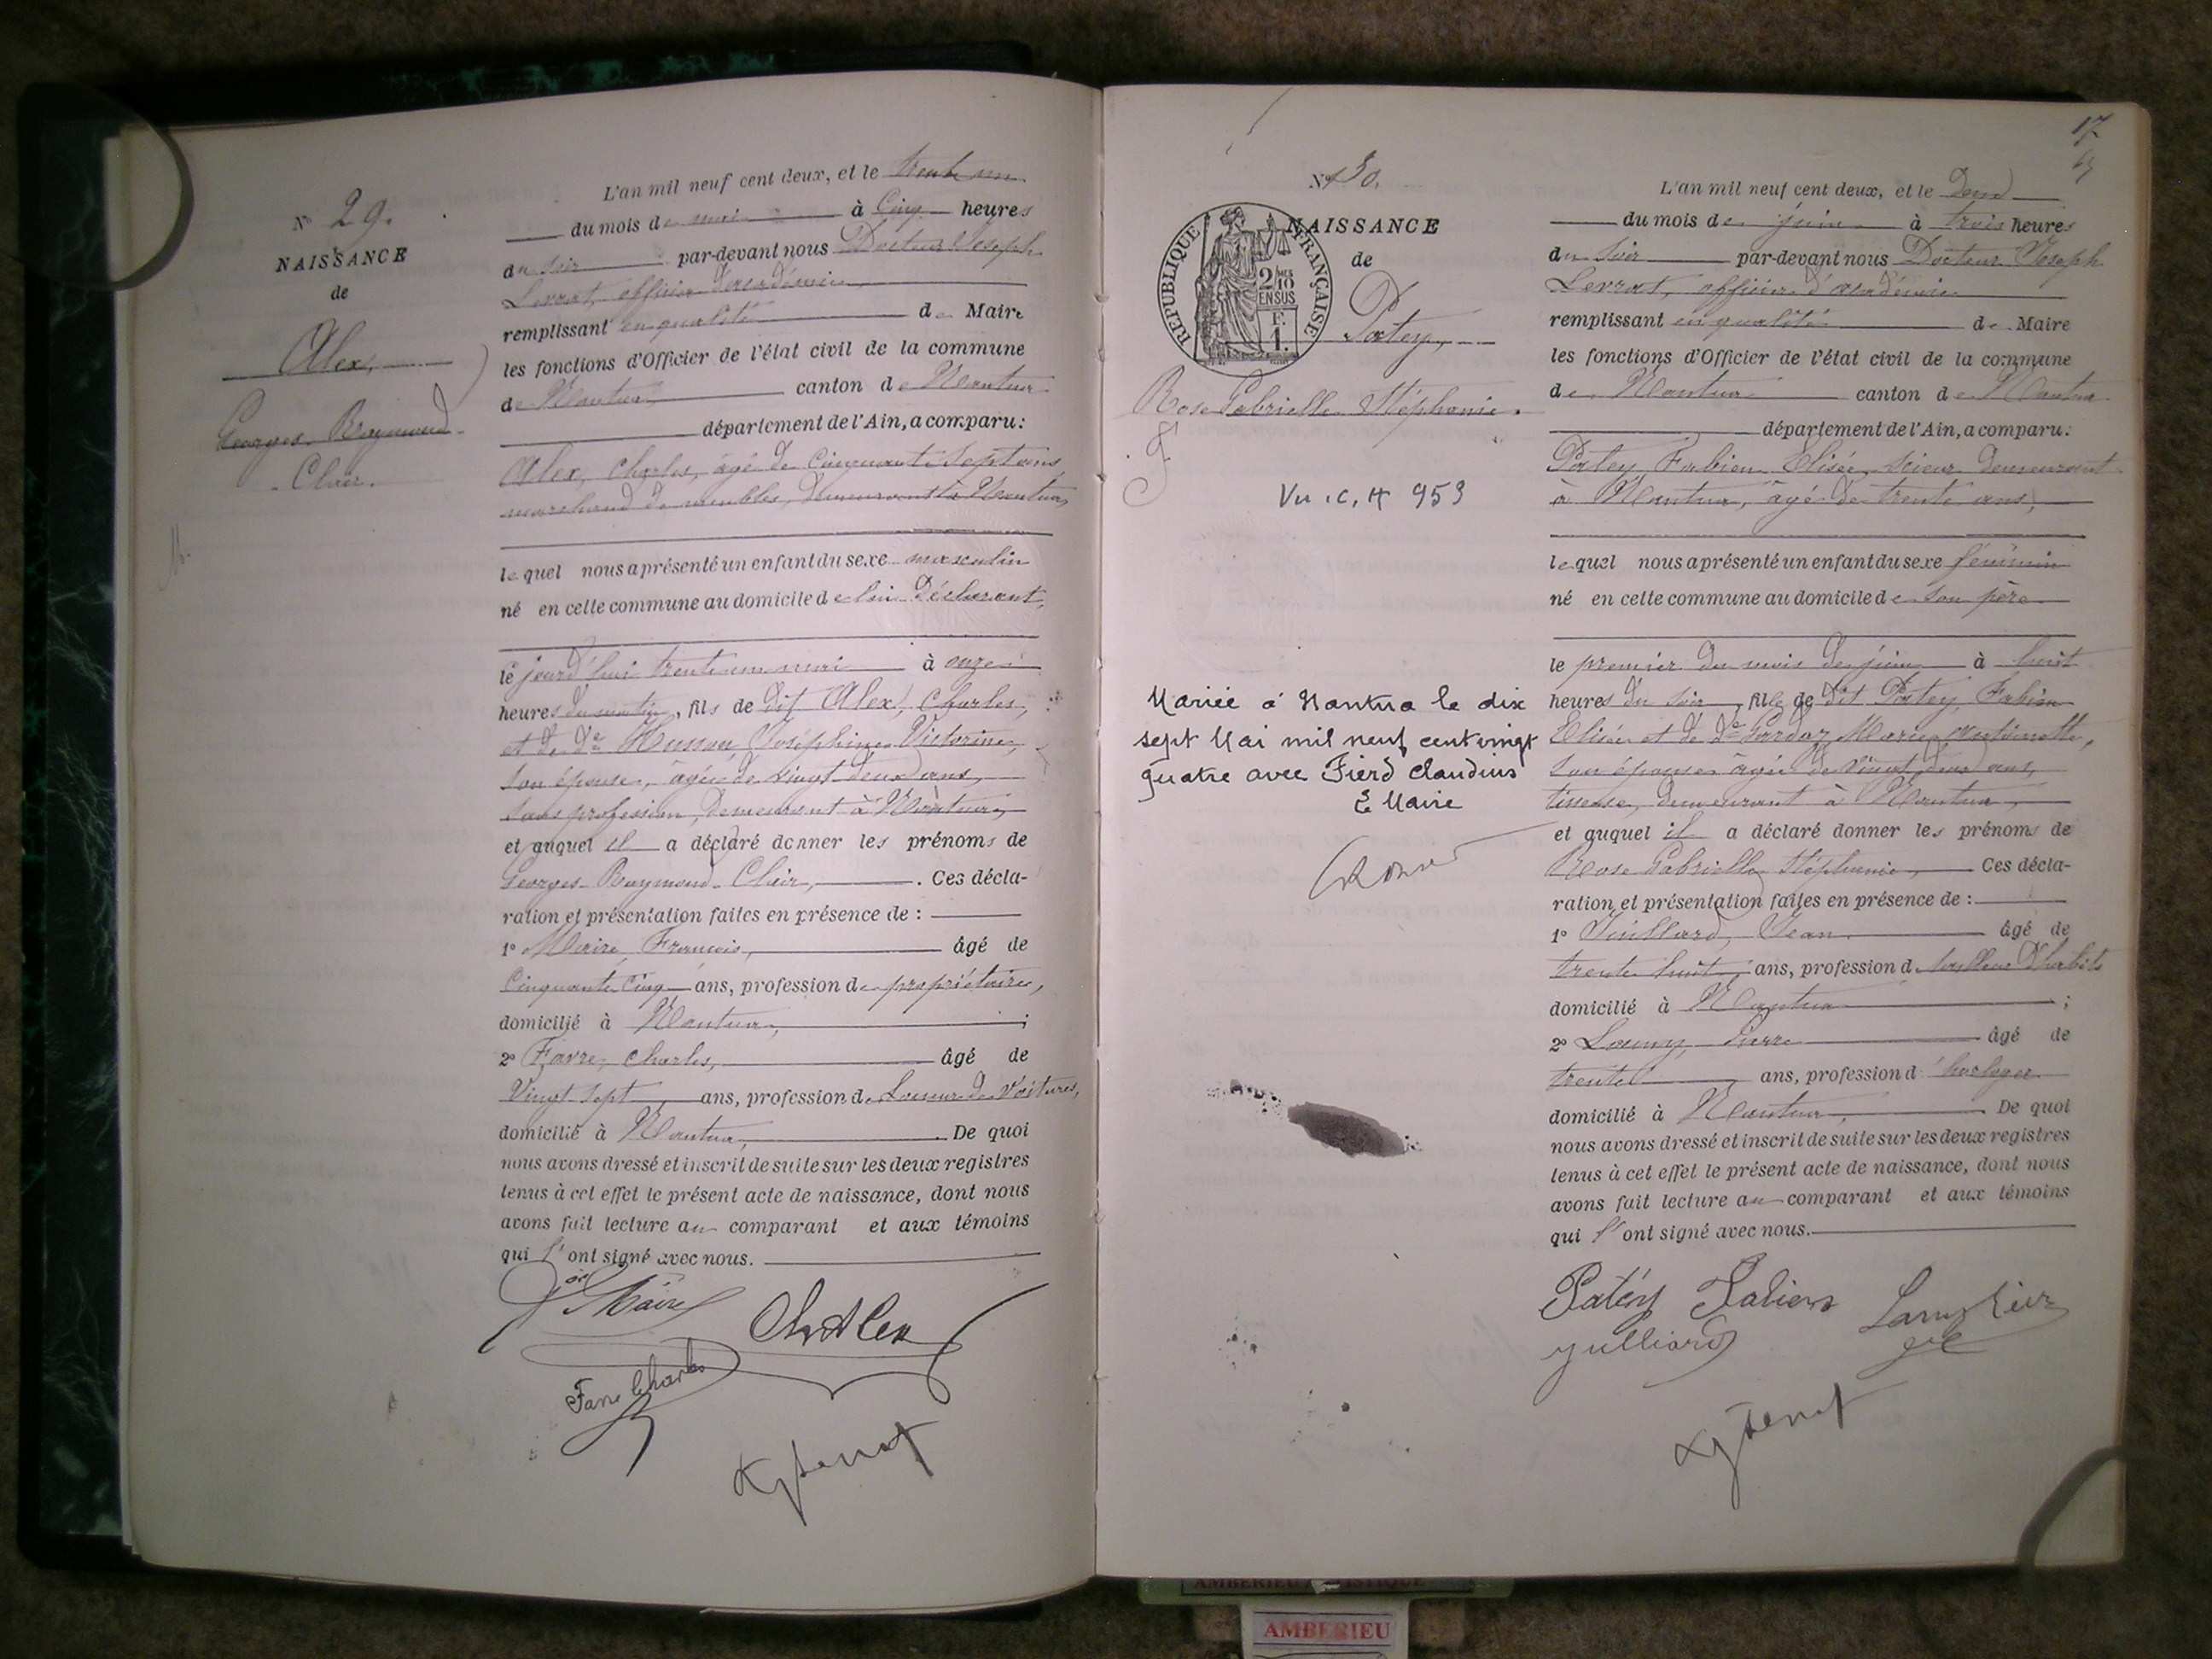 N° 29.
NAISSANCE
de
Alex,
Georges Raymond
Clair.
L'an mil neuf cent deux, et le trente un
du mois de mai à Cinq heures
du soir par-devant nous Docteur Joseph
Levrat, officier d'académie,
remplissant en qualité de Maire
les fonctions d'Officier de l'état civil de la commune
de Nantua canton de Nantua
département de l'Ain, a comparu:
Alex, Charles, âgé de Cinquante Sept ans,
marchand de meubles, demeurant à Nantua,
lequel nous a présenté un enfant du sexe masculin
né en cette commune au domicile de lui Déclarant,
le jourd'hui trente un mai à onze
heures du matin, fils de dit Alex, Charles,
et de De Joséphine Victorine,
son épouse, âgée de vingt deux ans,
sans profession, demeurant à Nantua,
et auquel il a déclaré donner les prénoms de
Georges Raymond Clair, . Ces décla-
ration et présentation faites en présence de :
1° Maire, François, âgé de
Cinquante Cinq ans, profession de propriétaire,
domicilié à Nantua, ;
2° Favre, Charles, âgé de
Vingt Sept ans, profession de Loueur de Voitures,
domicilié à Nantua, . De quoi
nous avons dressé et inscrit de suite sur les deux registres
tenus à cet effet le présent acte de naissance, dont nous
avons fait lecture au comparant et aux témoins
qui l'ont signé avec nous.
Maire
Ch Alex
Favre Charles
17
N° 30.
NAISSANCE
de
RÉPUBLIQUE FRANÇAISE
2/10 EN SUS
F. 1.
Patey,
Rose Gabrielle Stéphanie.
F
Vu .C. 953
Mariée à Nantua le dix
sept Mai mil neuf cent vingt
quatre avec Fierd Claudius
E Maire
L'an mil neuf cent deux, et le Deux
du mois de juin à trois heures
du soir par-devant nous Docteur Joseph
Levrat, officier d'académie
remplissant en qualité de Maire
les fonctions d'Officier de l'état civil de la commune
de Nantua canton de Nantua
département de l'Ain, a comparu:
Patey, Fabien Elisée, scieur demeurant
à Nantua, âgé de trente ans,
lequel nous a présenté un enfant du sexe féminin
né en cette commune au domicile de son père
le premier du mois de juin à huit
heures du soir, fille de dit Patey, Fabien
Elisée et de De Marie Antoinette,
son épouse âgée de vingt deux ans,
tisseuse, demeurant à Nantua,
et auquel il a déclaré donner les prénoms de
Rose Gabrielle Stéphanie, Ces décla-
ration et présentation faites en présence de :
1° Juillard, Jean âgé de
trente huit ans, profession de tailleur d'habits
domicilié à Nantua ;
2° Lamy, Pierre âgé de
trente ans, profession d'horloger
domicilié à Nantua, . De quoi
nous avons dressé et inscrit de suite sur les deux registres
tenus à cet effet le présent acte de naissance, dont nous
avons fait lecture au comparant et aux témoins
qui l'ont signé avec nous.
Patey Fabien
Julliard
AMBERIEU
AMBERIEU